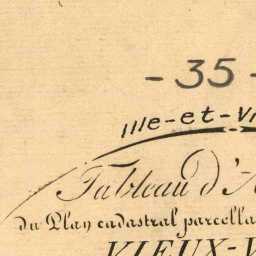 - 35 -
Ille-et-Vi
Tableau d'A
du Plan cadastral parcella
VIEUX-V